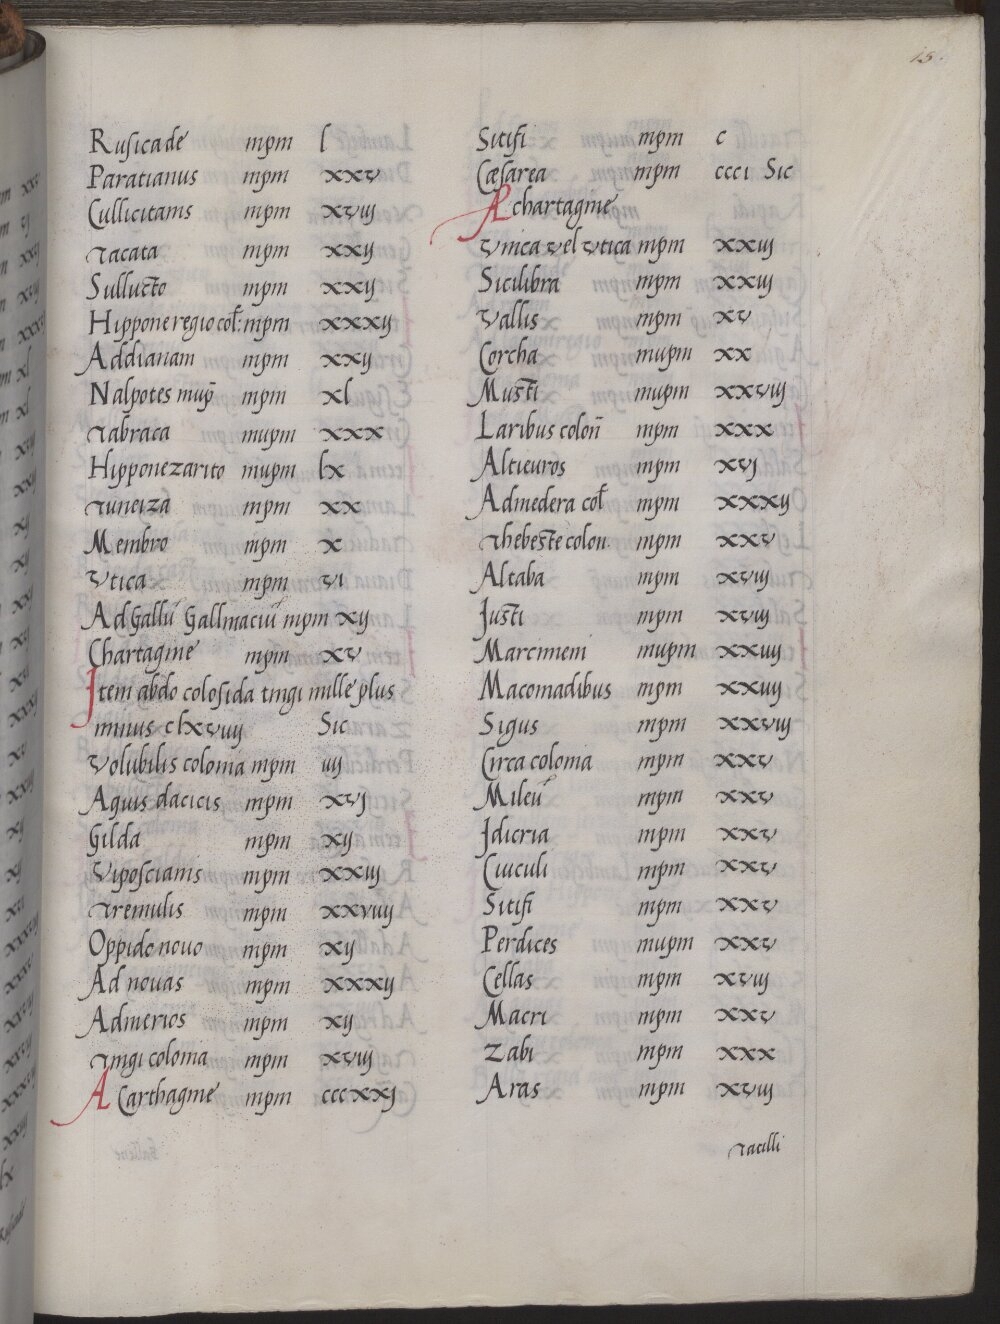 15.
Rusicade mpm l
Paratianus mpm xxv
Cullicitanis mpm xviij
Tacata mpm xxij
Sullucto mpm xxij
Hippone regio col̄. mpm xxxij
Addianam mpm xxij
Nalpotes mup̄ mpm xl
Tabraca mupm xxx
Hipponezarito mupm lx
Tuneiza mpm xx
Membro mpm x
Vtica mpm vi
Ad Gallū Gallinaciū mpm xij
Chartagine mpm xv
Item abdo colosida tingi mille plus
minus clxviiij Sic
Volubilis colonia mpm iiij
Aquis dacicis mpm xvj
Gilda mpm xij
Viposcianis mpm xxiij
Tremulis mpm xxviiij
Oppido nouo mpm xij
Ad nouas mpm xxxij
Admerios mpm xij
Tingi colonia mpm xviij
A Carthagine mpm cccxxj
Sitifi mpm c
Cæsarea mpm ccci Sic
A chartagine
Vnica vel vtica mpm xxiij
Sicilibra mpm xxiij
Vallis mpm xv
Corcha mupm xx
Musti mupm xxviij
Laribus colon̄ mpm xxx
Altieuros mpm xvj
Admedera col̄ mpm xxxij
Thebeste colon. mpm xxv
Altaba mpm xviij
Justi mpm xviij
Marcimeni mupm xxiiij
Macomadibus mpm xxiiij
Sigus mpm xxviij
Circa colonia mpm xxv
Mileū mpm xxv
Idicria mpm xxv
Cuiculi mpm xxv
Sitifi mpm xxv
Perdices mupm xxv
Cellas mpm xviij
Macri mpm xxv
Zabi mpm xxx
Aras mpm xviij
Tatilli